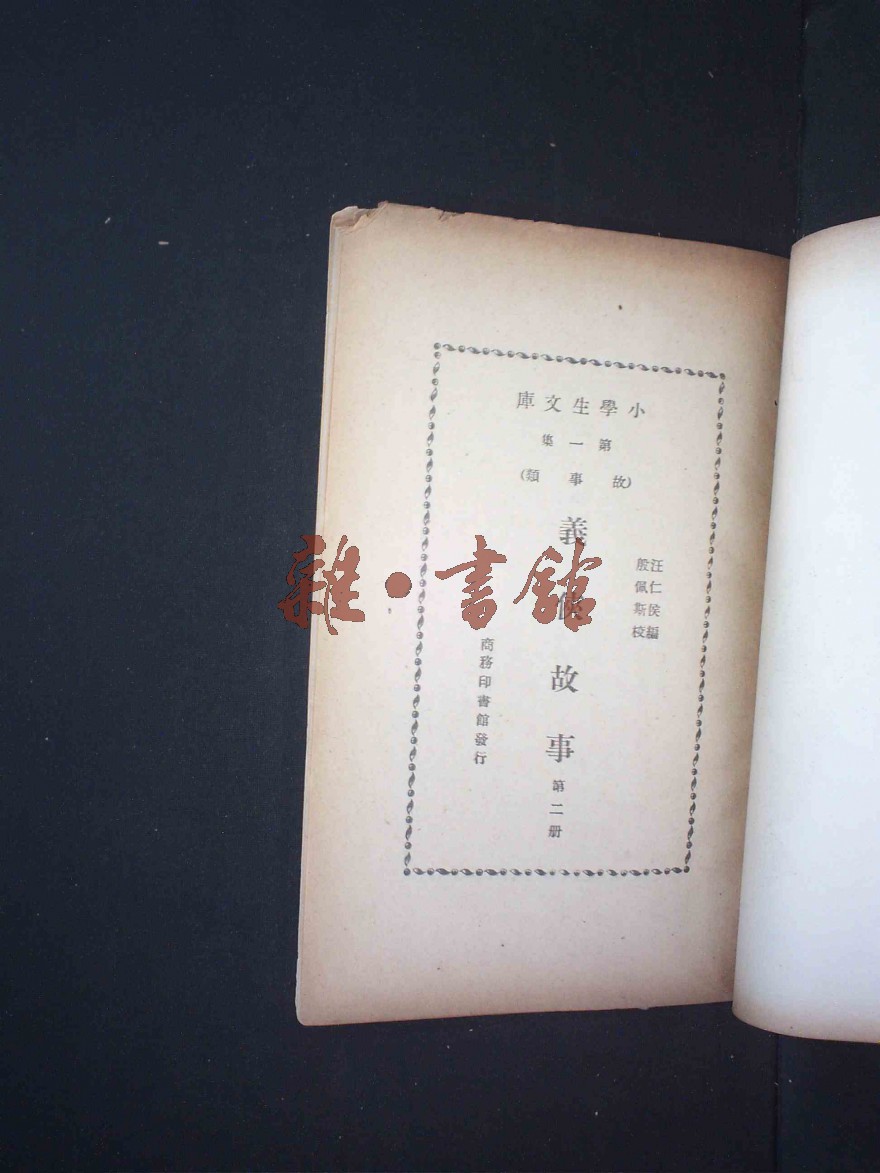 小學生文庫
第一集
(故事類)
汪仁侯編
殷佩斯校
義俠故事 第二册
商務印書館發行
雜·書館